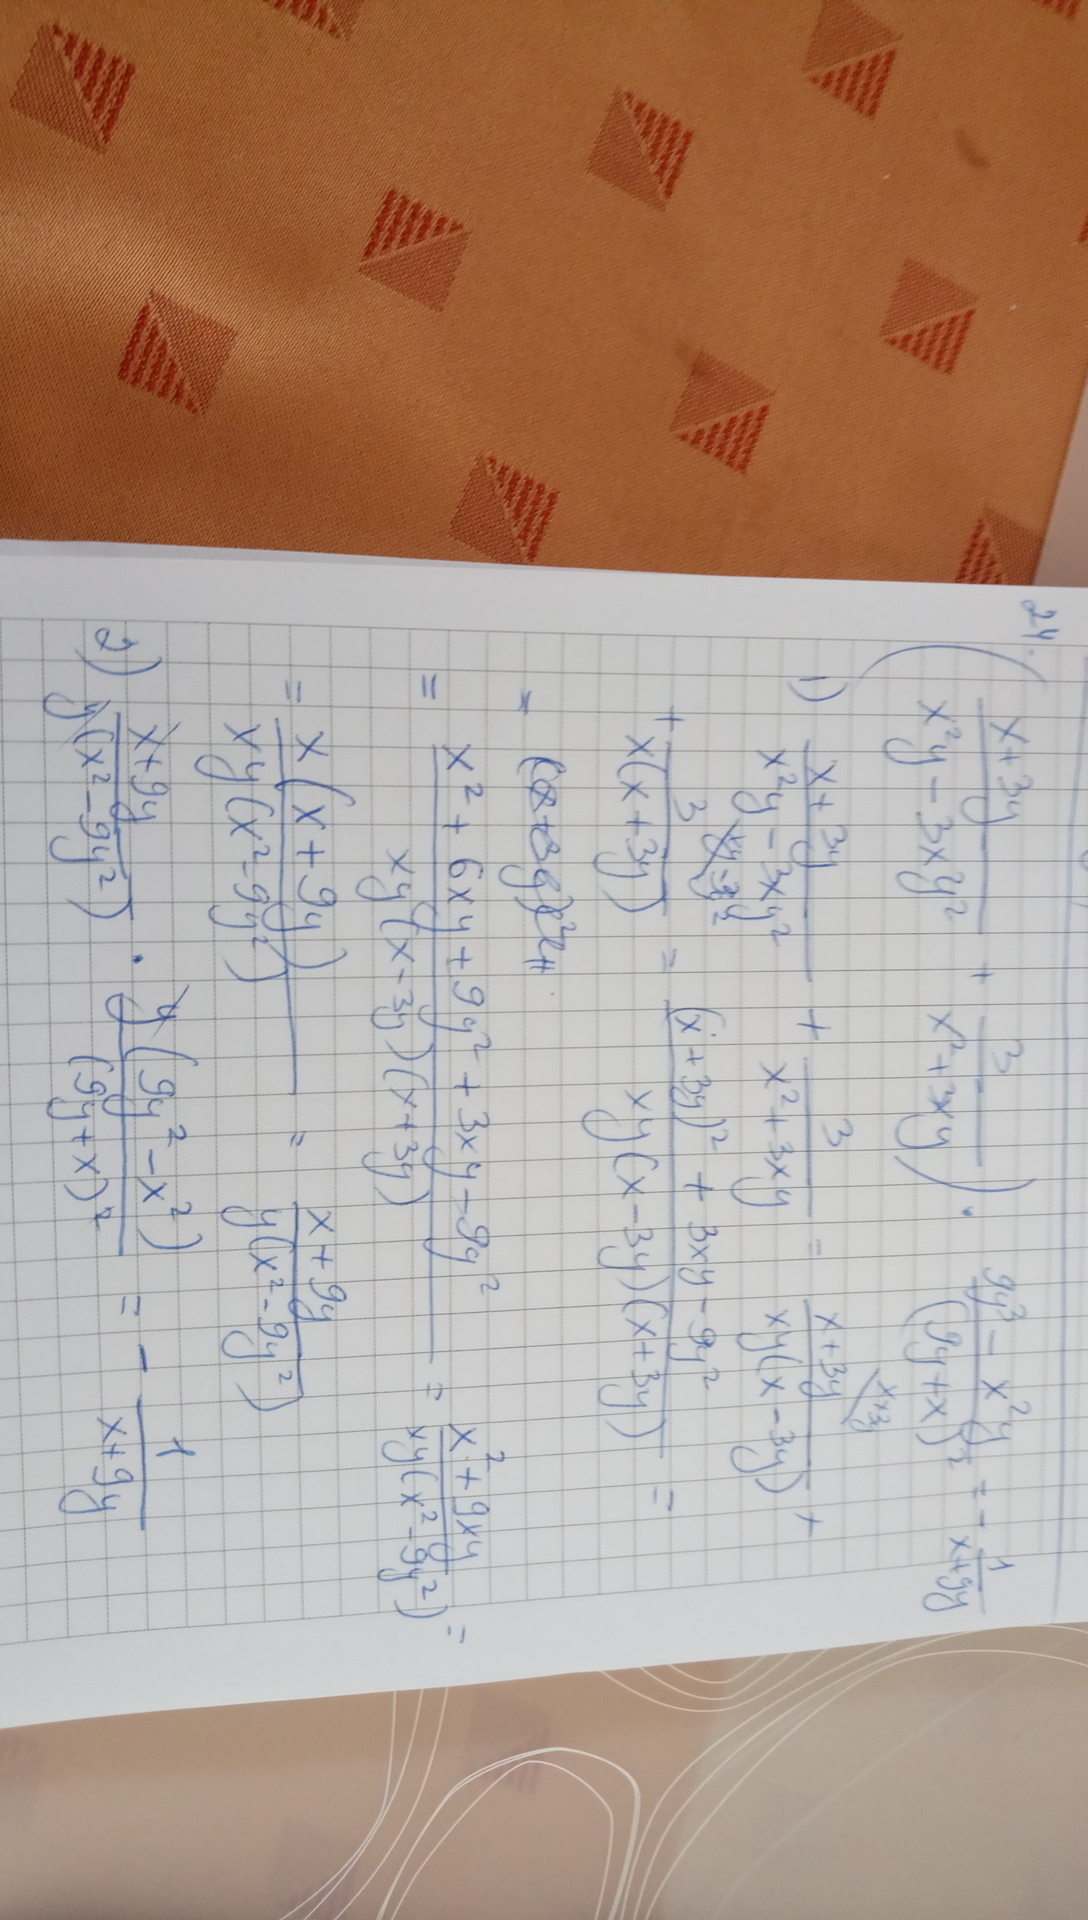 24. ( (x+3y)/(x²y - 3xy²) + 3/(x²+3xy) ) · (9y³ - x²y)/(9y+x)² = - 1/(x+9y)
1) (x+3y)/(x²y - 3xy²) + 3/(x²+3xy) = (x+3y)/(xy(x-3y)) +
+ 3/(x(x+3y)) = ((x+3y)² + 3xy - 9y²)/(xy(x-3y)(x+3y)) =
= (x² + 6xy + 9y² + 3xy - 9y²)/(xy(x-3y)(x+3y)) = (x² + 9xy)/(xy(x² - 9y²)) =
= x(x+9y)/(xy(x² - 9y²)) = (x+9y)/(y(x² - 9y²))
2) (x+9y)/(y(x² - 9y²)) · y(9y² - x²)/(9y+x)² = - 1/(x+9y)